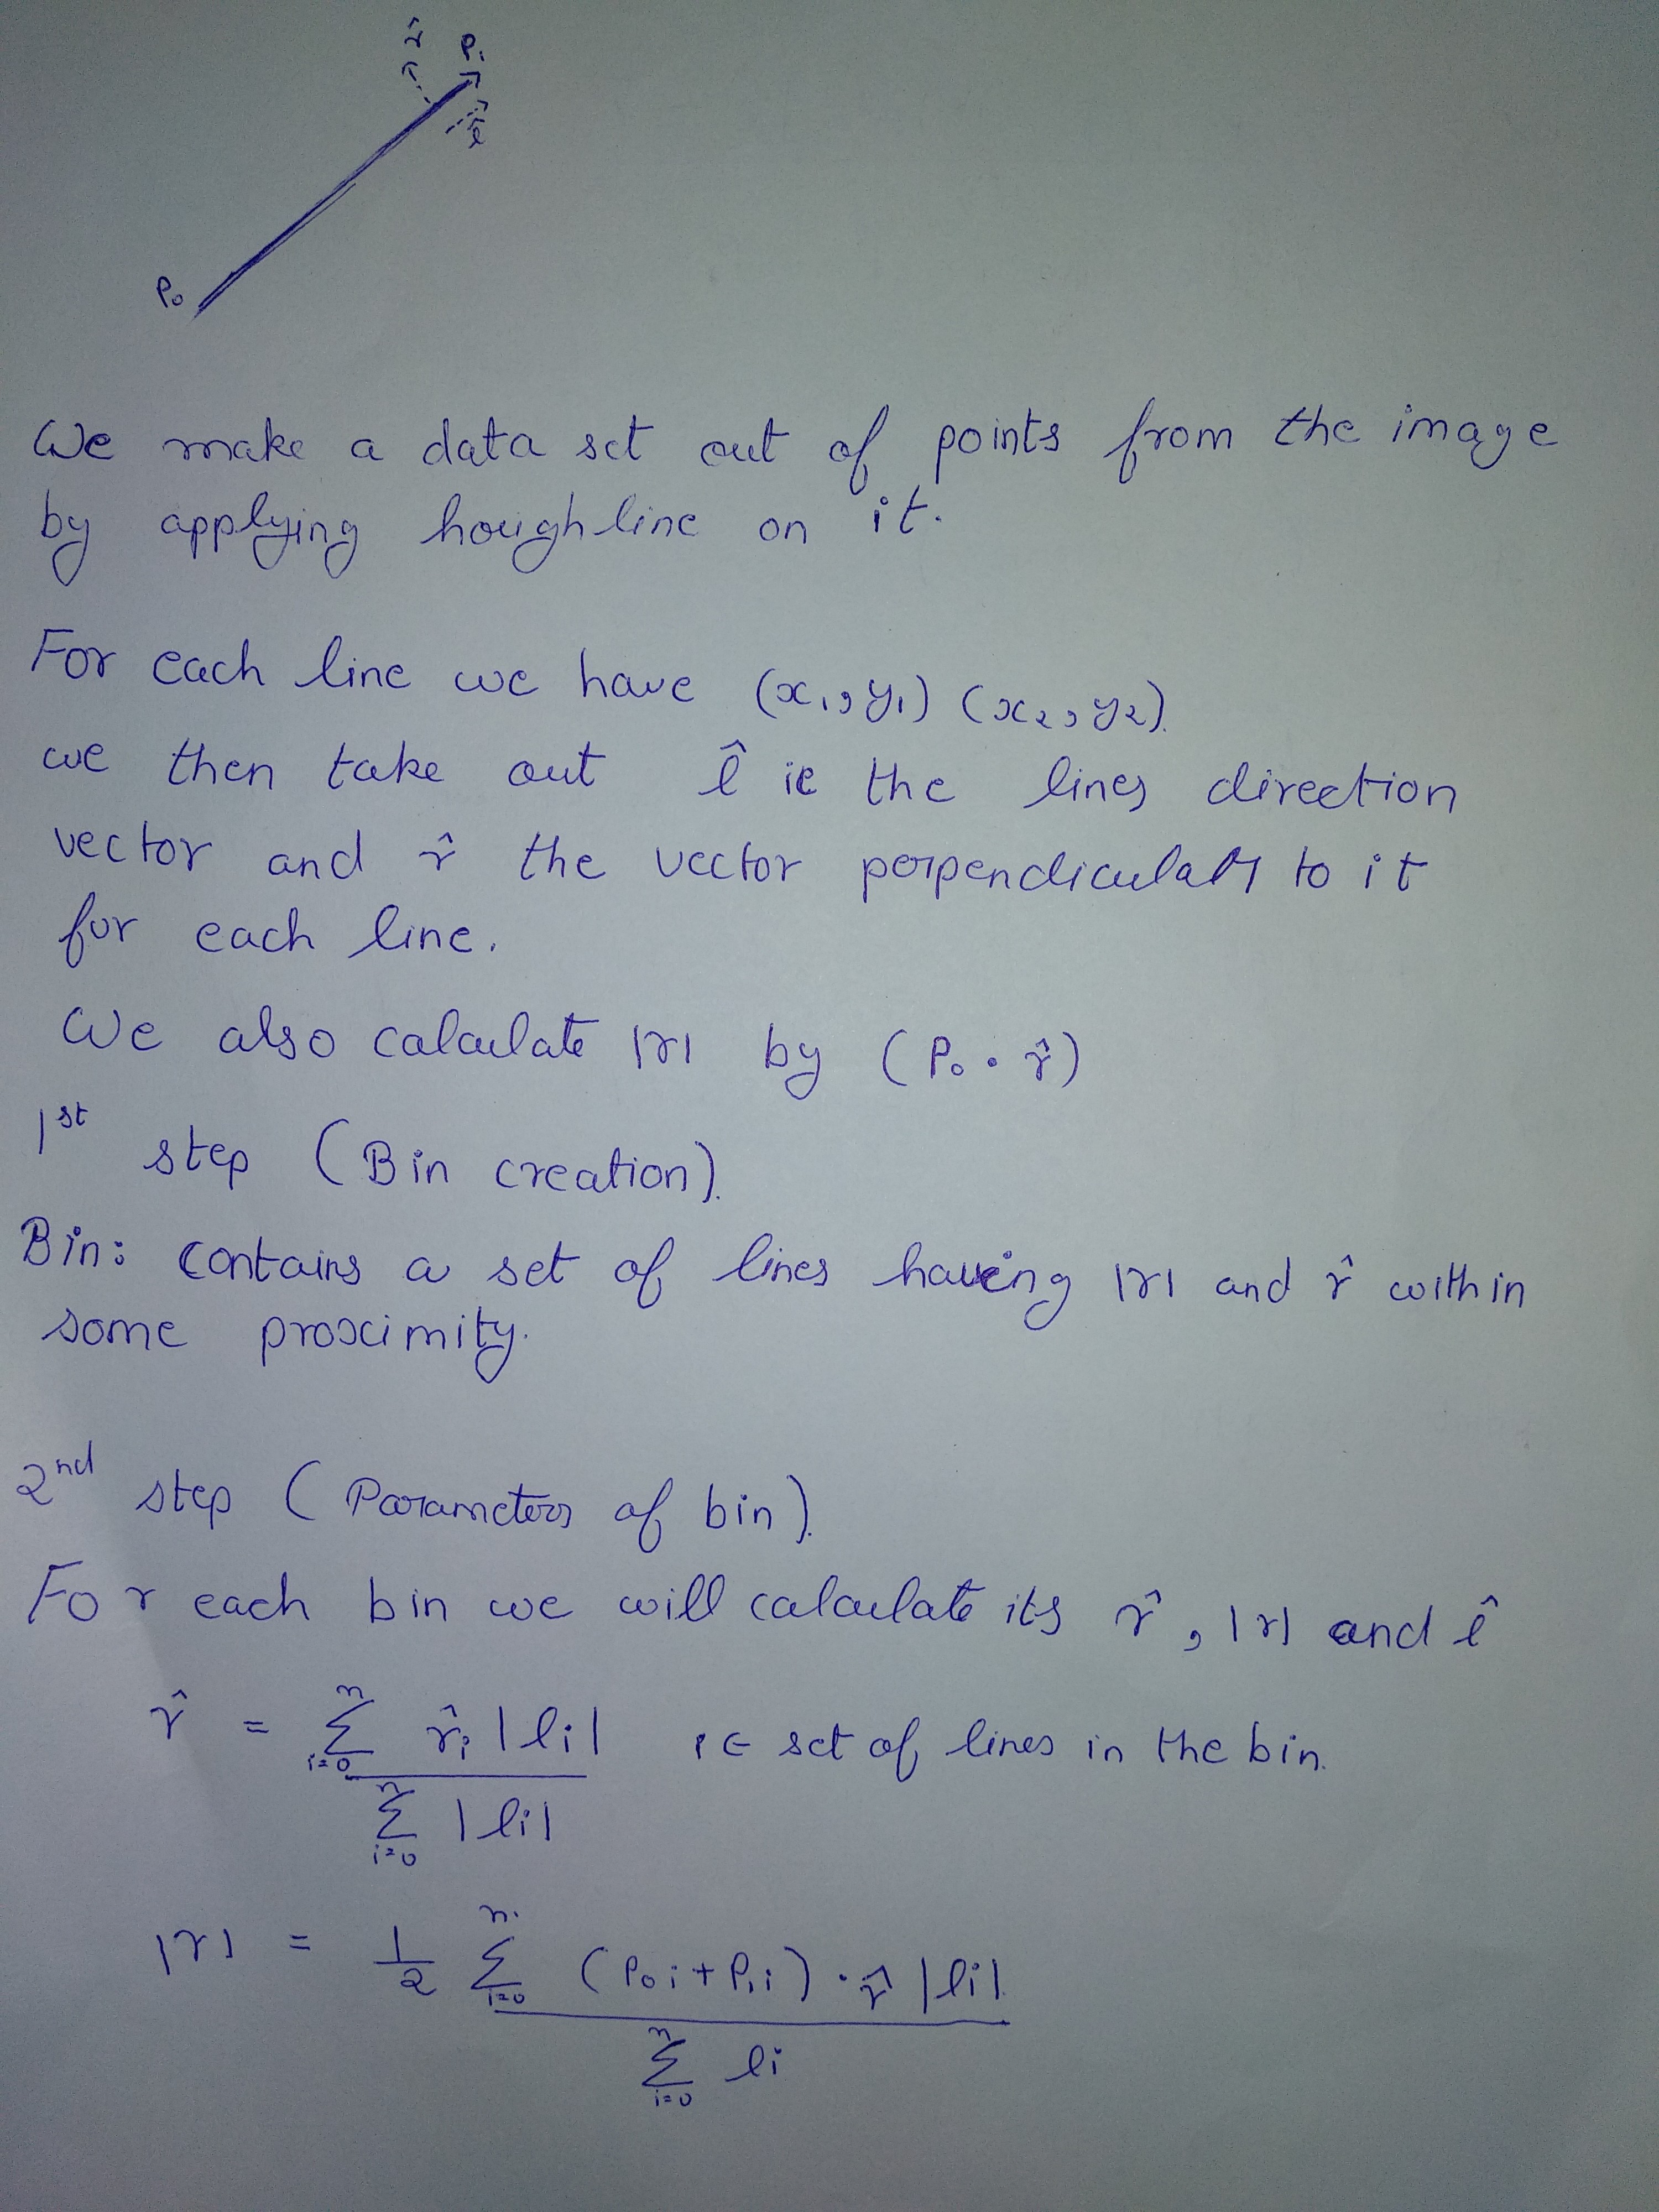 r̂ P₁
l̂
P₀
We make a data set out of points from the image
by applying houghline on it.
For each line we have (x₁, y₁) (x₂, y₂).
we then take out l̂ ie the lines direction
vector and r̂ the vector perpendicular to it
for each line.
We also calculate |r| by (P₀ . r̂)
1st step (Bin creation).
Bin: contains a set of lines having |r| and r̂ within
some proximity.
2nd step (Parameters of bin).
For each bin we will calculate its r̂, |r| and l̂
r̂ = n Σ i=0 r̂i |li| i ∈ set of lines in the bin.
n Σ i=0 |li|
|r| = 1/2 n. Σ i=0 (P₀i + P₁i) . r̂ |li|
n Σ i=0 li